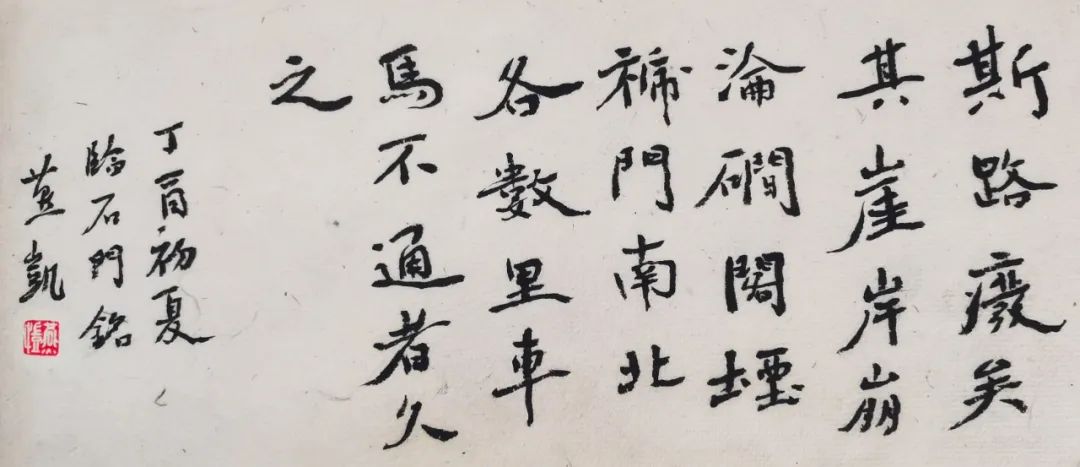 斯路癈矣
其崖岸崩
淪磵閣堙
褫門南北
各數里車
馬不通者久
之
丁酉初夏
臨石門銘
凱